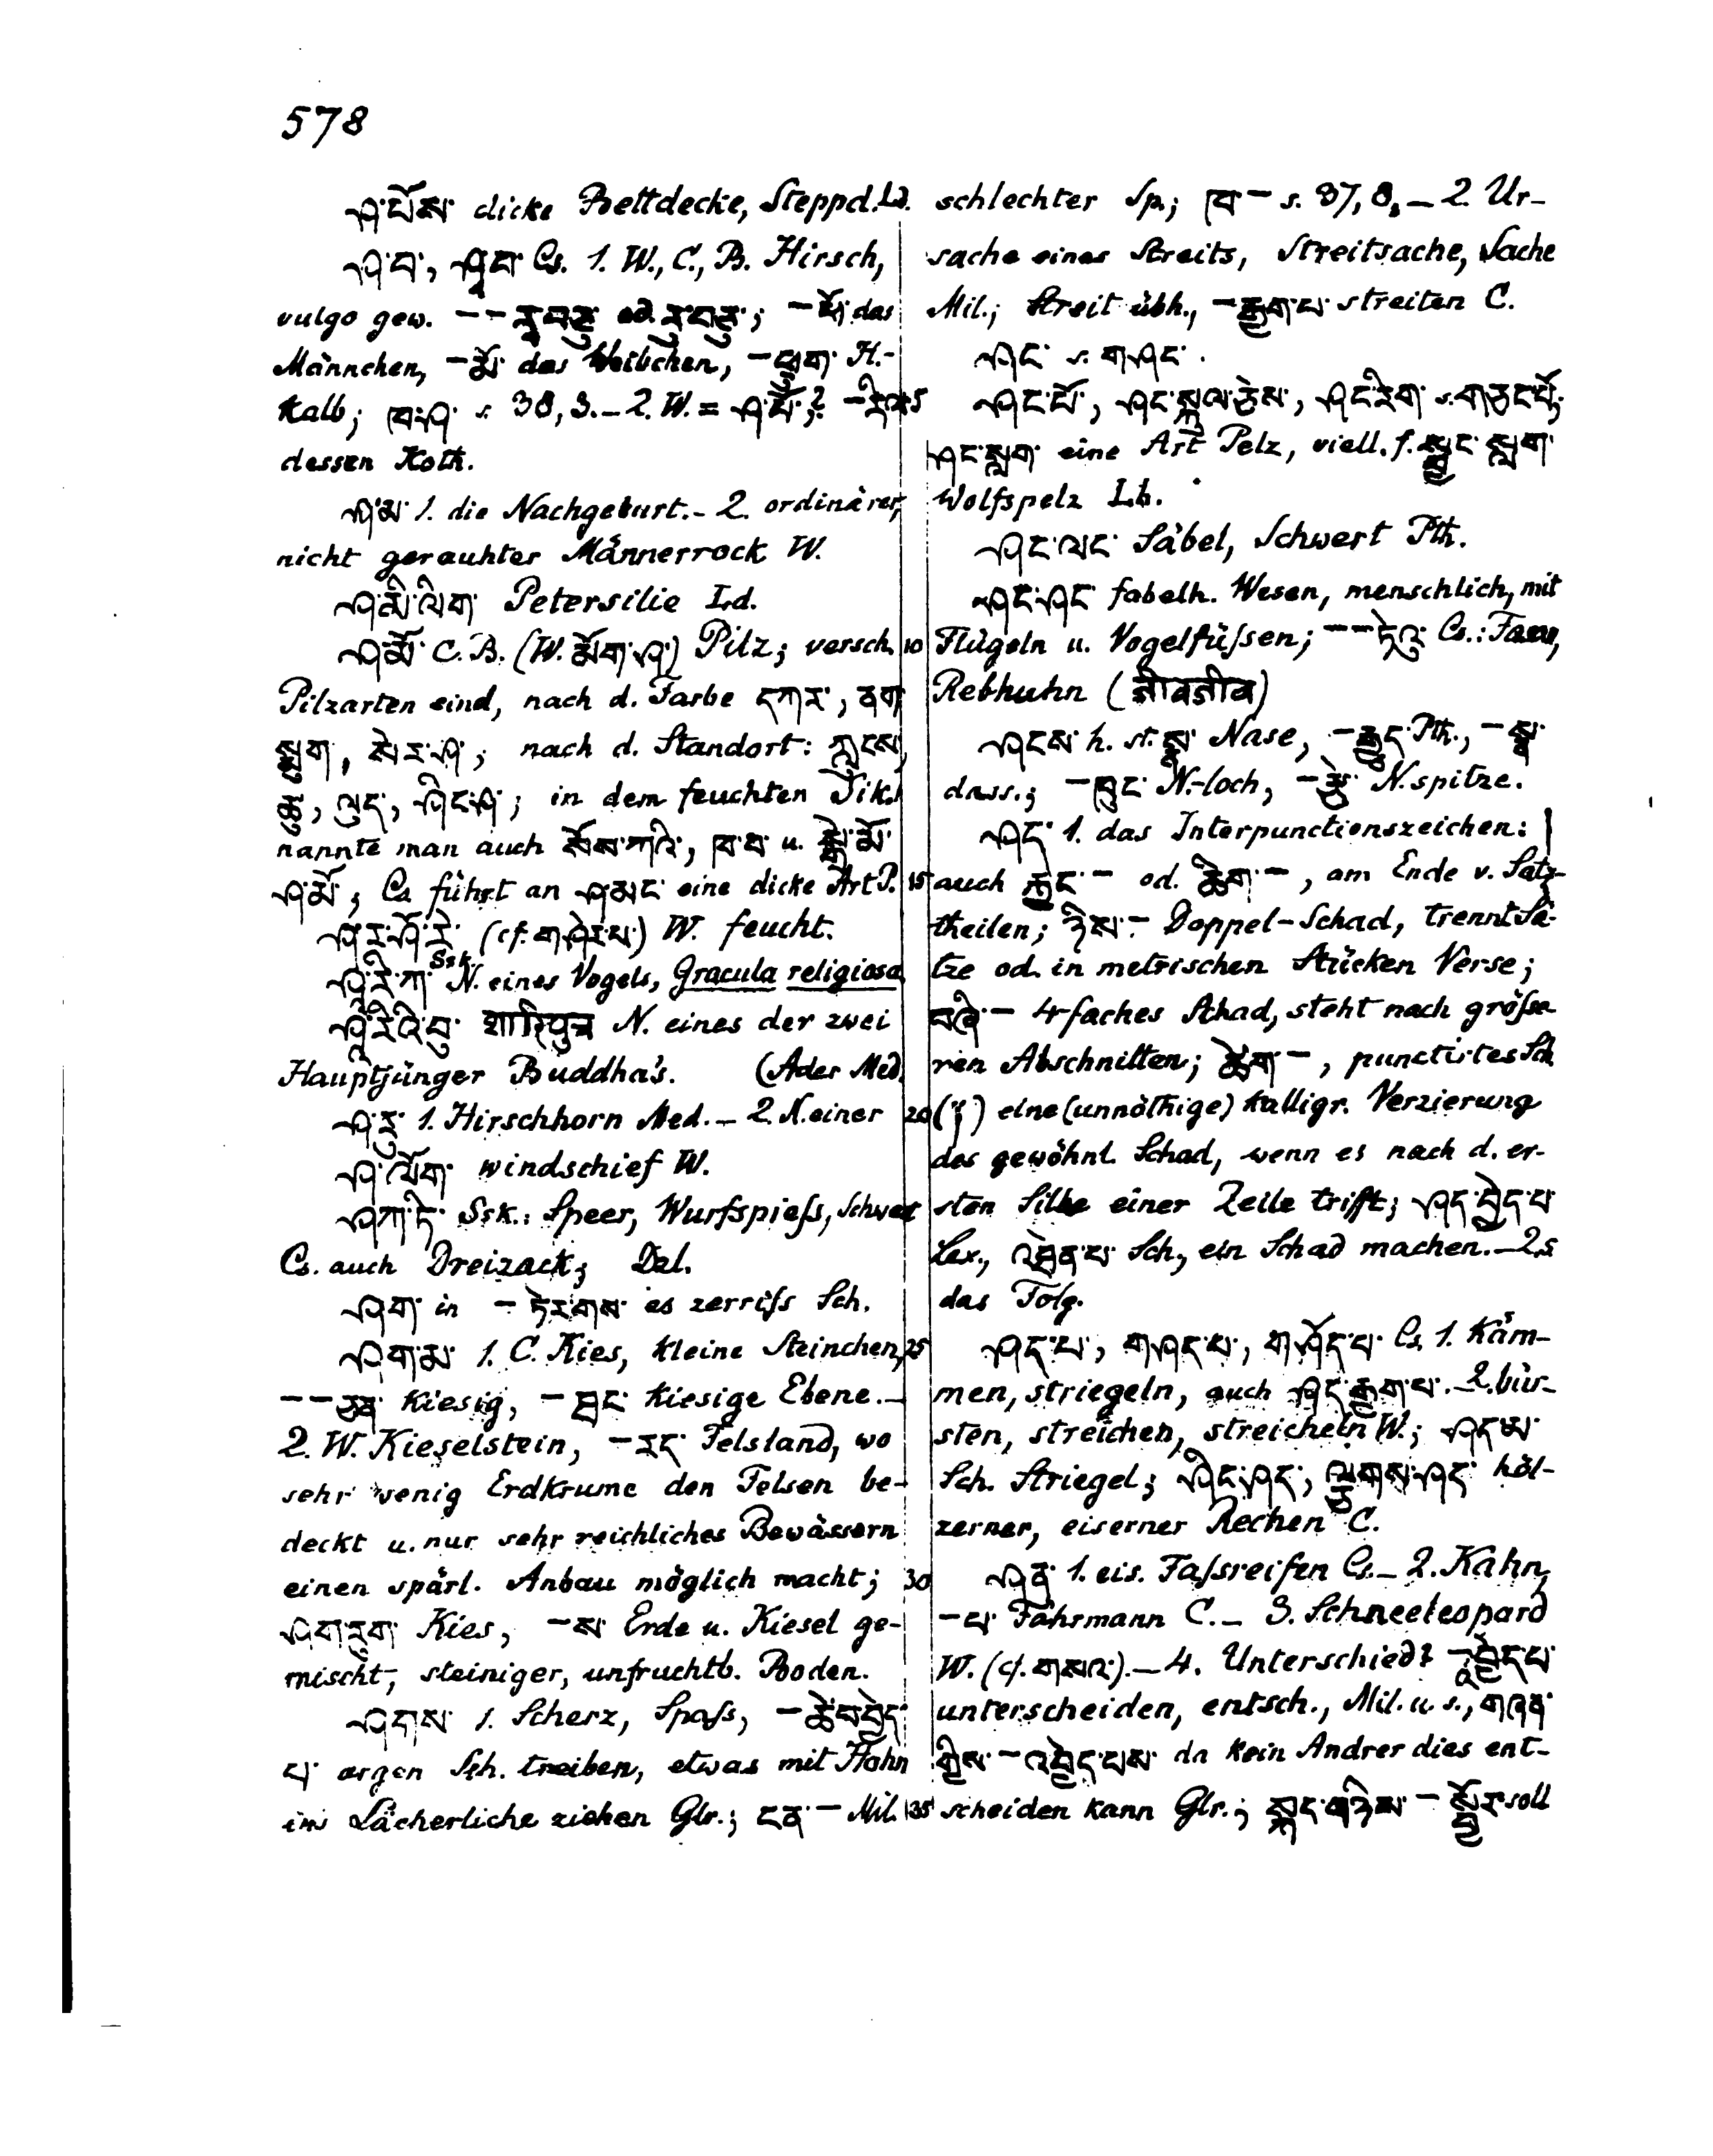 578
ཤ་པོས་ dicke Bettdecke, Steppd. Ld.
ཤ་བ་, ཤྭ་བ་ Cs. 1. W., C., B. Hirsch,
vulgo gew. – – ; – ཕོ་ das
Männchen, – མོ་ das Weibchen, – ཕྲུག་ H.-
kalb; ཁ་ཤ་ s. 38, 3. – 2. W. = ཤ་པོ་,? – རིལ་
dessen Koth.
ཤ་མ་ 1. die Nachgeburt. – 2. ordinärer,
nicht gerauhter Männerrock W.
ཤ་མི་ལིག་ Petersilie Ld.
ཤ་མོ་ C. B. (W. མོག་ཤ་) Pilz; versch.
Pilzarten sind, nach d. Farbe དཀར་, ནག་
སྨུག་, སེར་ཤ་; nach d. Standort: ཀླུངས་,
ཆུ་, ལུད་, ཤིང་ཤ་; in dem feuchten Sik.
nannte man auch སོས་ཀའི་, ཁ་བ་ u. མོ་
ཤ་མོ་; Cs. führt an ཤ་མང་ eine dicke Art P.
ཤ་ར་ཤོ་རེ་ (cf. གཤེར་པ་) W. feucht.
ཤཱ་རི་ཀ་ Ssk. N. eines Vogels, Gracula religiosa
ཤཱ་རིའི་བུ་ शारिपुत्र N. eines der zwei
Hauptjünger Buddha's. (Ader Med.
ཤ་རུ་ 1. Hirschhorn Med. – 2. N. einer
ཤ་ལོག་ windschief W.
ཤཀ་ཏི་ Ssk.: Speer, Wurfspieſs, Schwert
Cs. auch Dreizack; Dzl.
ཤག་ in – ཏེ་རགས་ es zerriſs Sch.
ཤག་མ་ 1. C. Kies, kleine Steinchen,
– – ཅན་ kiesig, – ཐང་ kiesige Ebene. –
2. W. Kieselstein, – རད་ Felsland, wo
sehr wenig Erdkrume den Felsen be-
deckt u. nur sehr reichliches Bewässern
einen spärl. Anbau möglich macht;
ཤག་རུག་ Kies, – ས་ Erde u. Kiesel ge-
mischt, steiniger, unfruchtb. Boden.
ཤགས་ 1. Scherz, Spaſs, – ཆེ་བ་བྱེད་
པ་ argen Sch. treiben, etwas mit Hohn
ins Lächerliche ziehen Glr.; ངན་ – Mil.
schlechter Sp.; ཁ་ – s. 37, 8. – 2. Ur-
sache eines Streits, Streitsache, Sache
Mil.; Streit übh., – རྒྱག་པ་ streiten C.
ཤང་ s. གཤང་.
5 ཤང་པོ་, ཤང་སྐལ་རྩེས་, ཤང་རིག་ s. གཅང་པོ་;
ཤང་སླག་ eine Art Pelz, viell. f. སྤྱང་སླག་
Wolfspelz Lh.
ཤང་ལང་ Säbel, Schwert Pth.
ཤང་ཤང་ fabelh. Wesen, menschlich, mit
10 Flügeln u. Vogelfüſsen; – – ཏེའུ་ Cs.: Fasan,
Rebhuhn (जीवजीव)
ཤངས་ h. st. སྣ་ Nase, – རྒྱུད་ Pth., – སྣ་
dass.; – ཁུང་ N.-loch, – རྩེ་ N. spitze.
ཤད་ 1. das Interpunctionszeichen: །
15 auch རྐྱང་ – od. ཆིག་ –, am Ende v. Satz-
theilen; ཉིས་ – Doppel-Schad, trennt Sä-
tze od. in metrischen Stücken Verse;
བཞི་ – 4-faches Schad, steht nach grösse-
ren Abschnitten; ཚེག་ –, punctirtes Sch.
20 (༑) eine (unnöthige) kalligr. Verzierung
des gewöhnl. Schad, wenn es nach d. er-
sten Silbe einer Zeile trifft; ཤད་བྱེད་པ་
Lex., འཐེན་པ་ Sch., ein Schad machen. – 2. s.
das Folg.
25 ཤད་པ་, གཤད་པ་, གཤོད་པ་ Cs. 1. käm-
men, striegeln, auch ཤད་རྒྱག་པ་. – 2. bür-
sten, streichen, streicheln W.; ཤད་མ་
Sch. Striegel; ཤིང་ཤད་, ལྕགས་ཤད་ höl-
zerner, eiserner Rechen C.
30 ཤན་ 1. eis. Faſsreifen Cs. – 2. Kahn,
– པ་ Fährmann C. – 3. Schneeleopard
W. (cf. གསའ་). – 4. Unterschied? – འབྱེད་པ་
unterscheiden, entsch., Mil. u. s., གཞན་
གྱིས་ – འབྱེད་པས་ da kein Andrer dies ent-
35 scheiden kann Glr.; སྐད་གཉིས་ – སྦྱོར་ soll